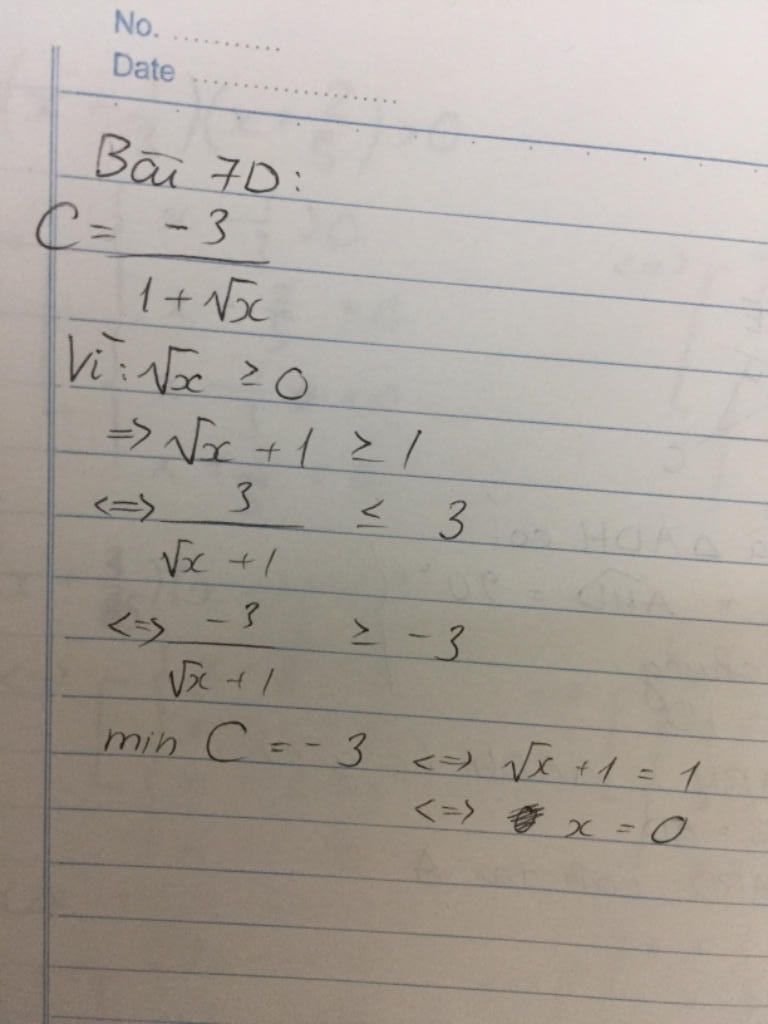 No. ............
Date ......................
Bài 7D:
C = -3 / (1 + √x)
Vì: √x ≥ 0
=> √x + 1 ≥ 1
<=> 3 / (√x + 1) ≤ 3
<=> -3 / (√x + 1) ≥ -3
min C = -3 <=> √x + 1 = 1
<=> x = 0